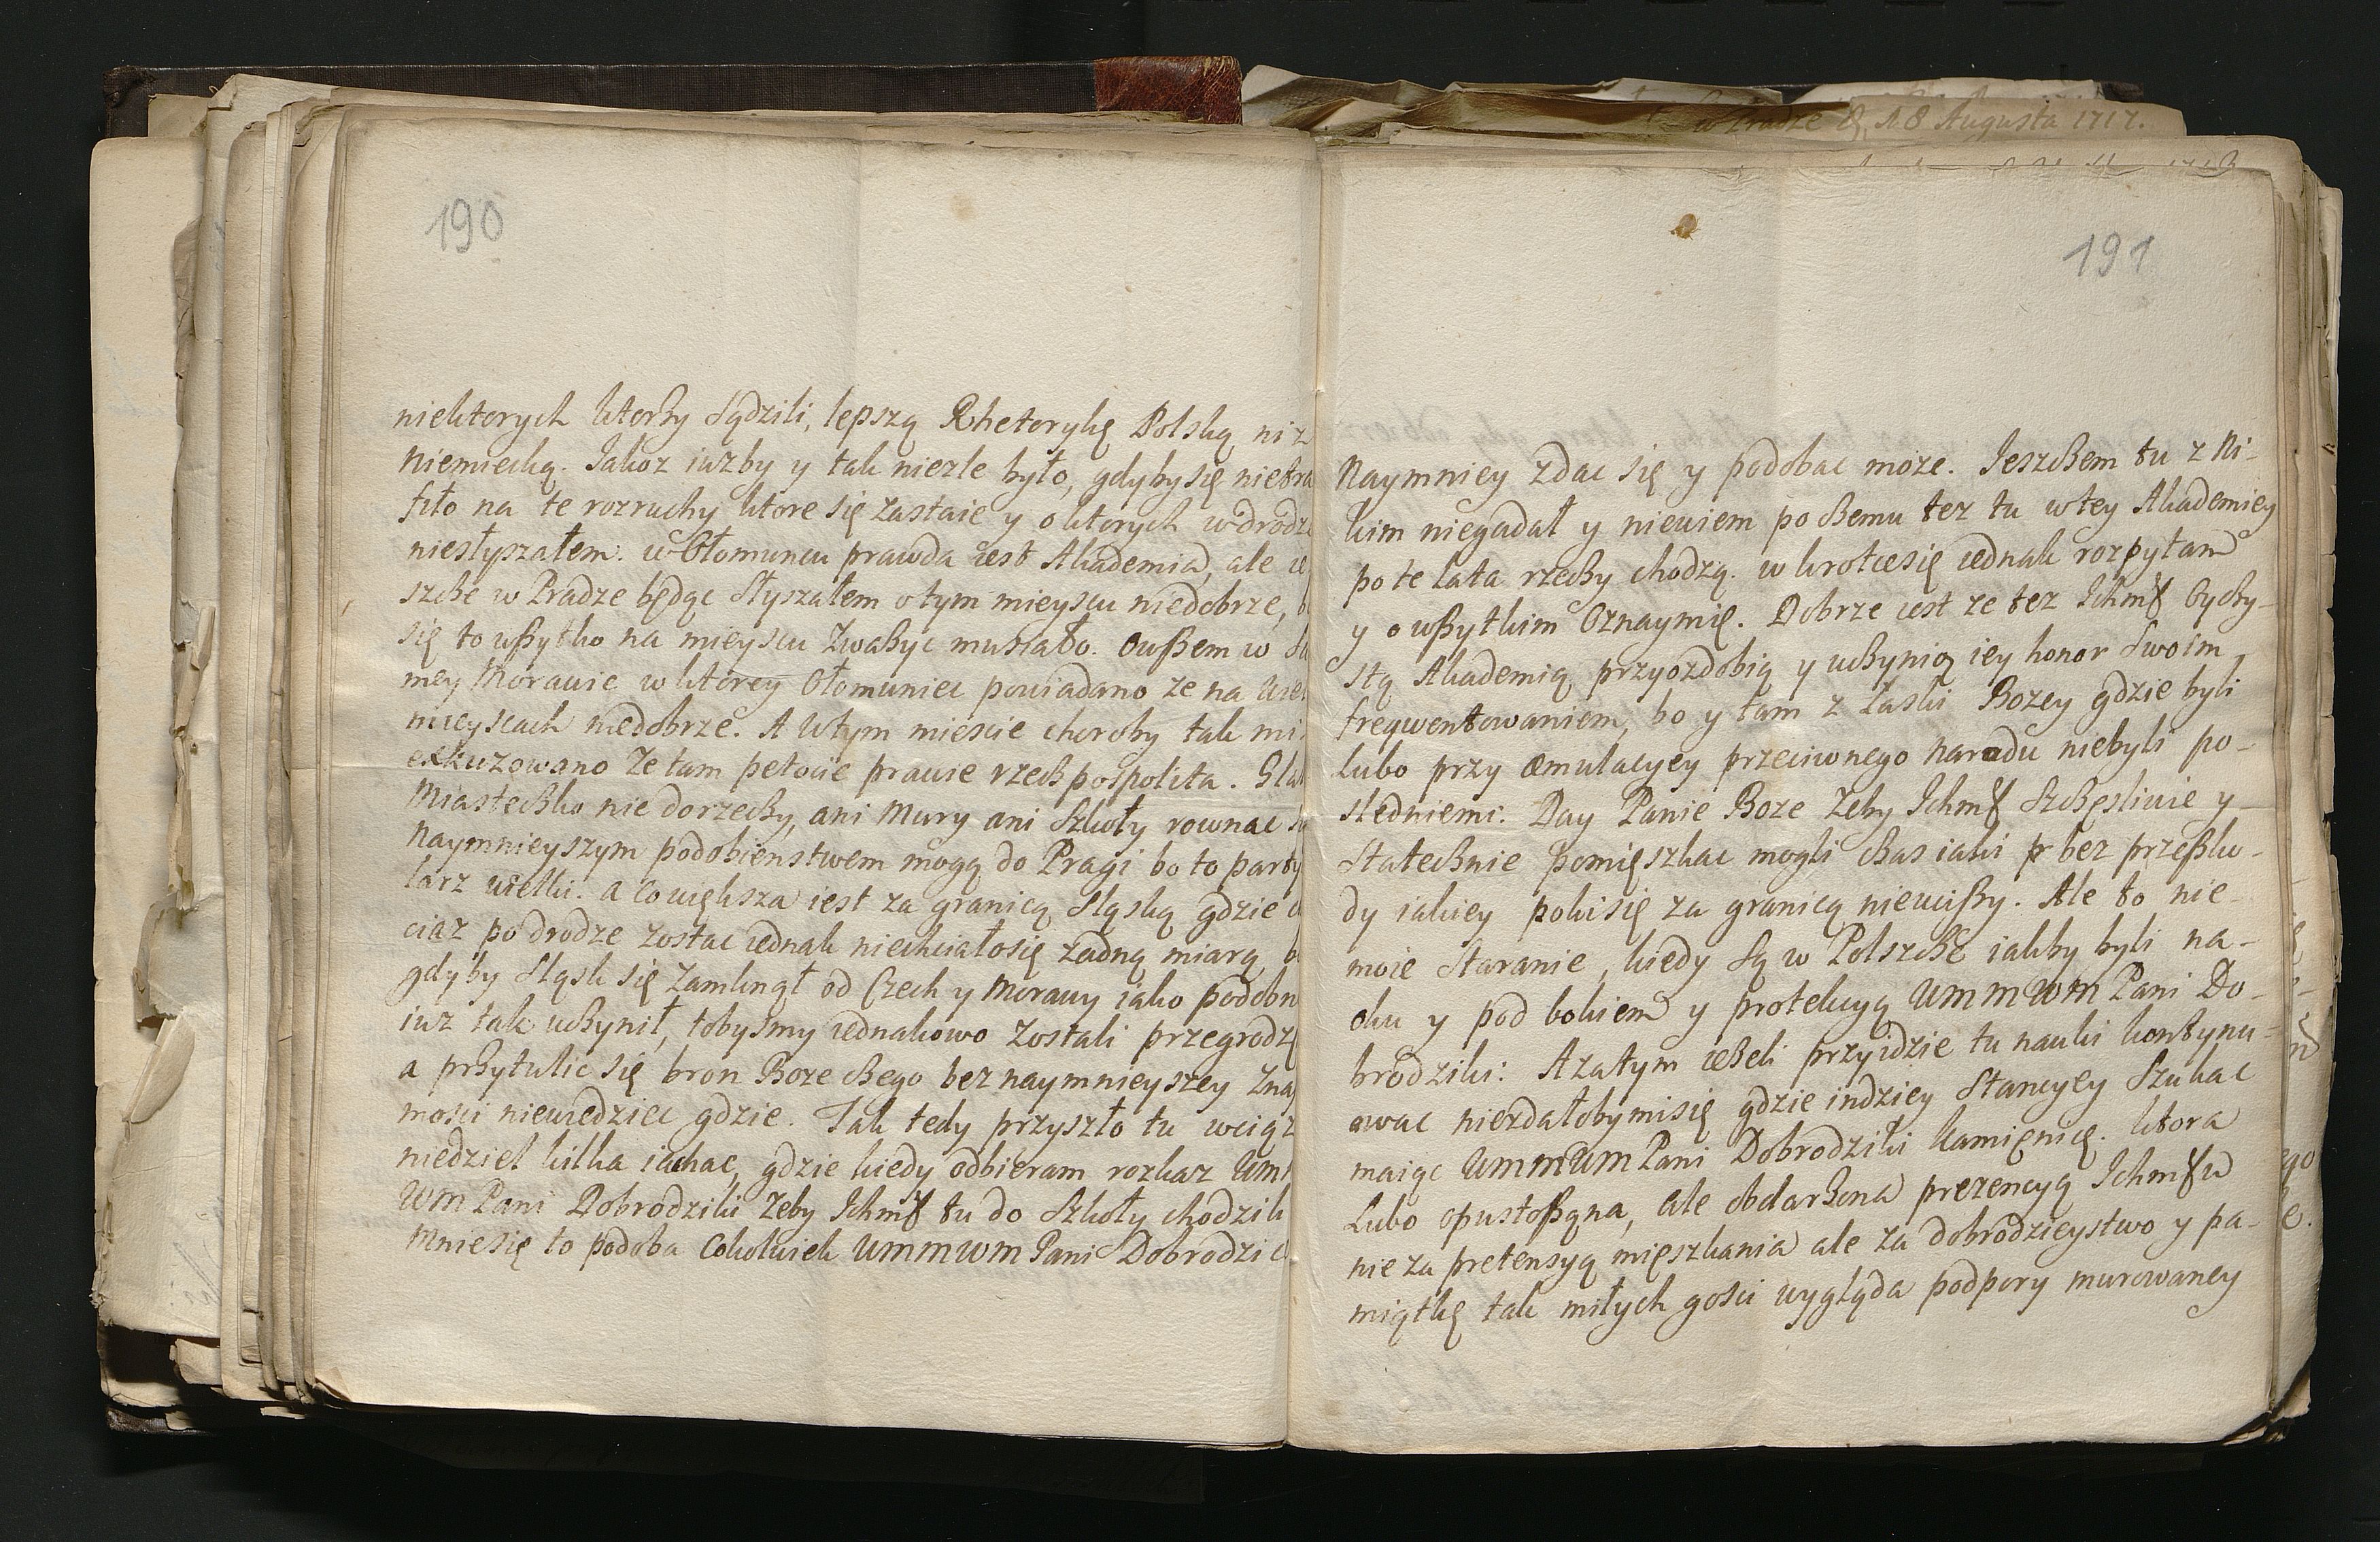 w Pradze 18 Augusta 1717.
190
niektorych ktorzy sądzili, lepszą Rhetorykę Polską niz
Niemiecką. Jakoz iuzby y tak niezle było, gdybysię nietra
fiło na te rozruchy ktore się zastaie y o ktorych w drodze
niesłyszałem. w Ołomuncu prawda iest Akademia, ale ie
szcze w Pradze będąc słyszałem o tym mieyscu niedobrze, b
się to wszytko na mieyscu zwazyc musiało. Owszem w Sa
mey Morawie w ktorey Ołomuniec powiadano ze na wiel
mieyscach niedobrze. A w tym miescie choroby tak mi
exkuzowano ze tam petocie prawie rzecz pospolita.
Miasteczko nie dorzeczy, ani Mury ani Szkoły rownac
naymnieyszym podobienstwem mogą do Pragi bo to party
larz wielki. a co większa iest za granicą Sląską gdzie
ciaz po drodze zostac iednak niechciałosię zadną miarą b
gdyby Sląsk się zamknął od Czech y Morawy iako podobn
iuz tak uczynił, tobysmy iednakowo zostali przegrodz
a przytulic się bron Boze czego bez naymnieyszey zna
mosci niewiedziec gdzie. Tak tedy przyszło tu wciąz
niedziel kilka iachac, gdzie kiedy odbieram rozkaz Um
Wm Pani Dobrodziki zeby Ichmć tu do Szkoły chodzili
Mniesię to podoba cokolwiek UmmWm Pani Dobrodzi
191
Naymniey zdac się y podobac moze. Jeszczem tu z Ni-
kim niegadał y niewiem po czemu tez tu w tey Akademiey
po te lata rzeczy chodzą. w krotcesię iednak rozpytam
y o wszytkim Oznaymię. Dobrze iest ze tez Ichmć Oyczy-
stą Akademią przyozdobią y uczynią iey honor Swoim
freqwentowaniem, bo y tam z Łaski Bozey gdzie byli
Lubo przy æmulacyey przeciwnego narodu niebyli po-
sledniemi. Day Panie Boze zeby Ichmć Szczęsliwie y
Statecznie pomięszkac mogli czas iaki pr bez przeszko-
dy iakiey pokisię za granicą nieuciszy. Ale to nie
moie Staranie, kiedy są w Polszcze iakby byli na-
oku y pod bokiem y protekcyą UmmWm Pani Do-
brodziki. A zatym iezeli przyidzie tu nauki kontynu-
awac niezdałobymisię gdzie indziey Stancyey Szukac
maiąc UmmWm Pani Dobrodziki kamięnicę. ktora
Lubo opustoszona, ale obdarzona prezencyą Ichmćw
nie za pretensyą mięszkania ale za dobrodzieystwo y pa-
miątkę tak miłych gosci wygląda podpory murowaney